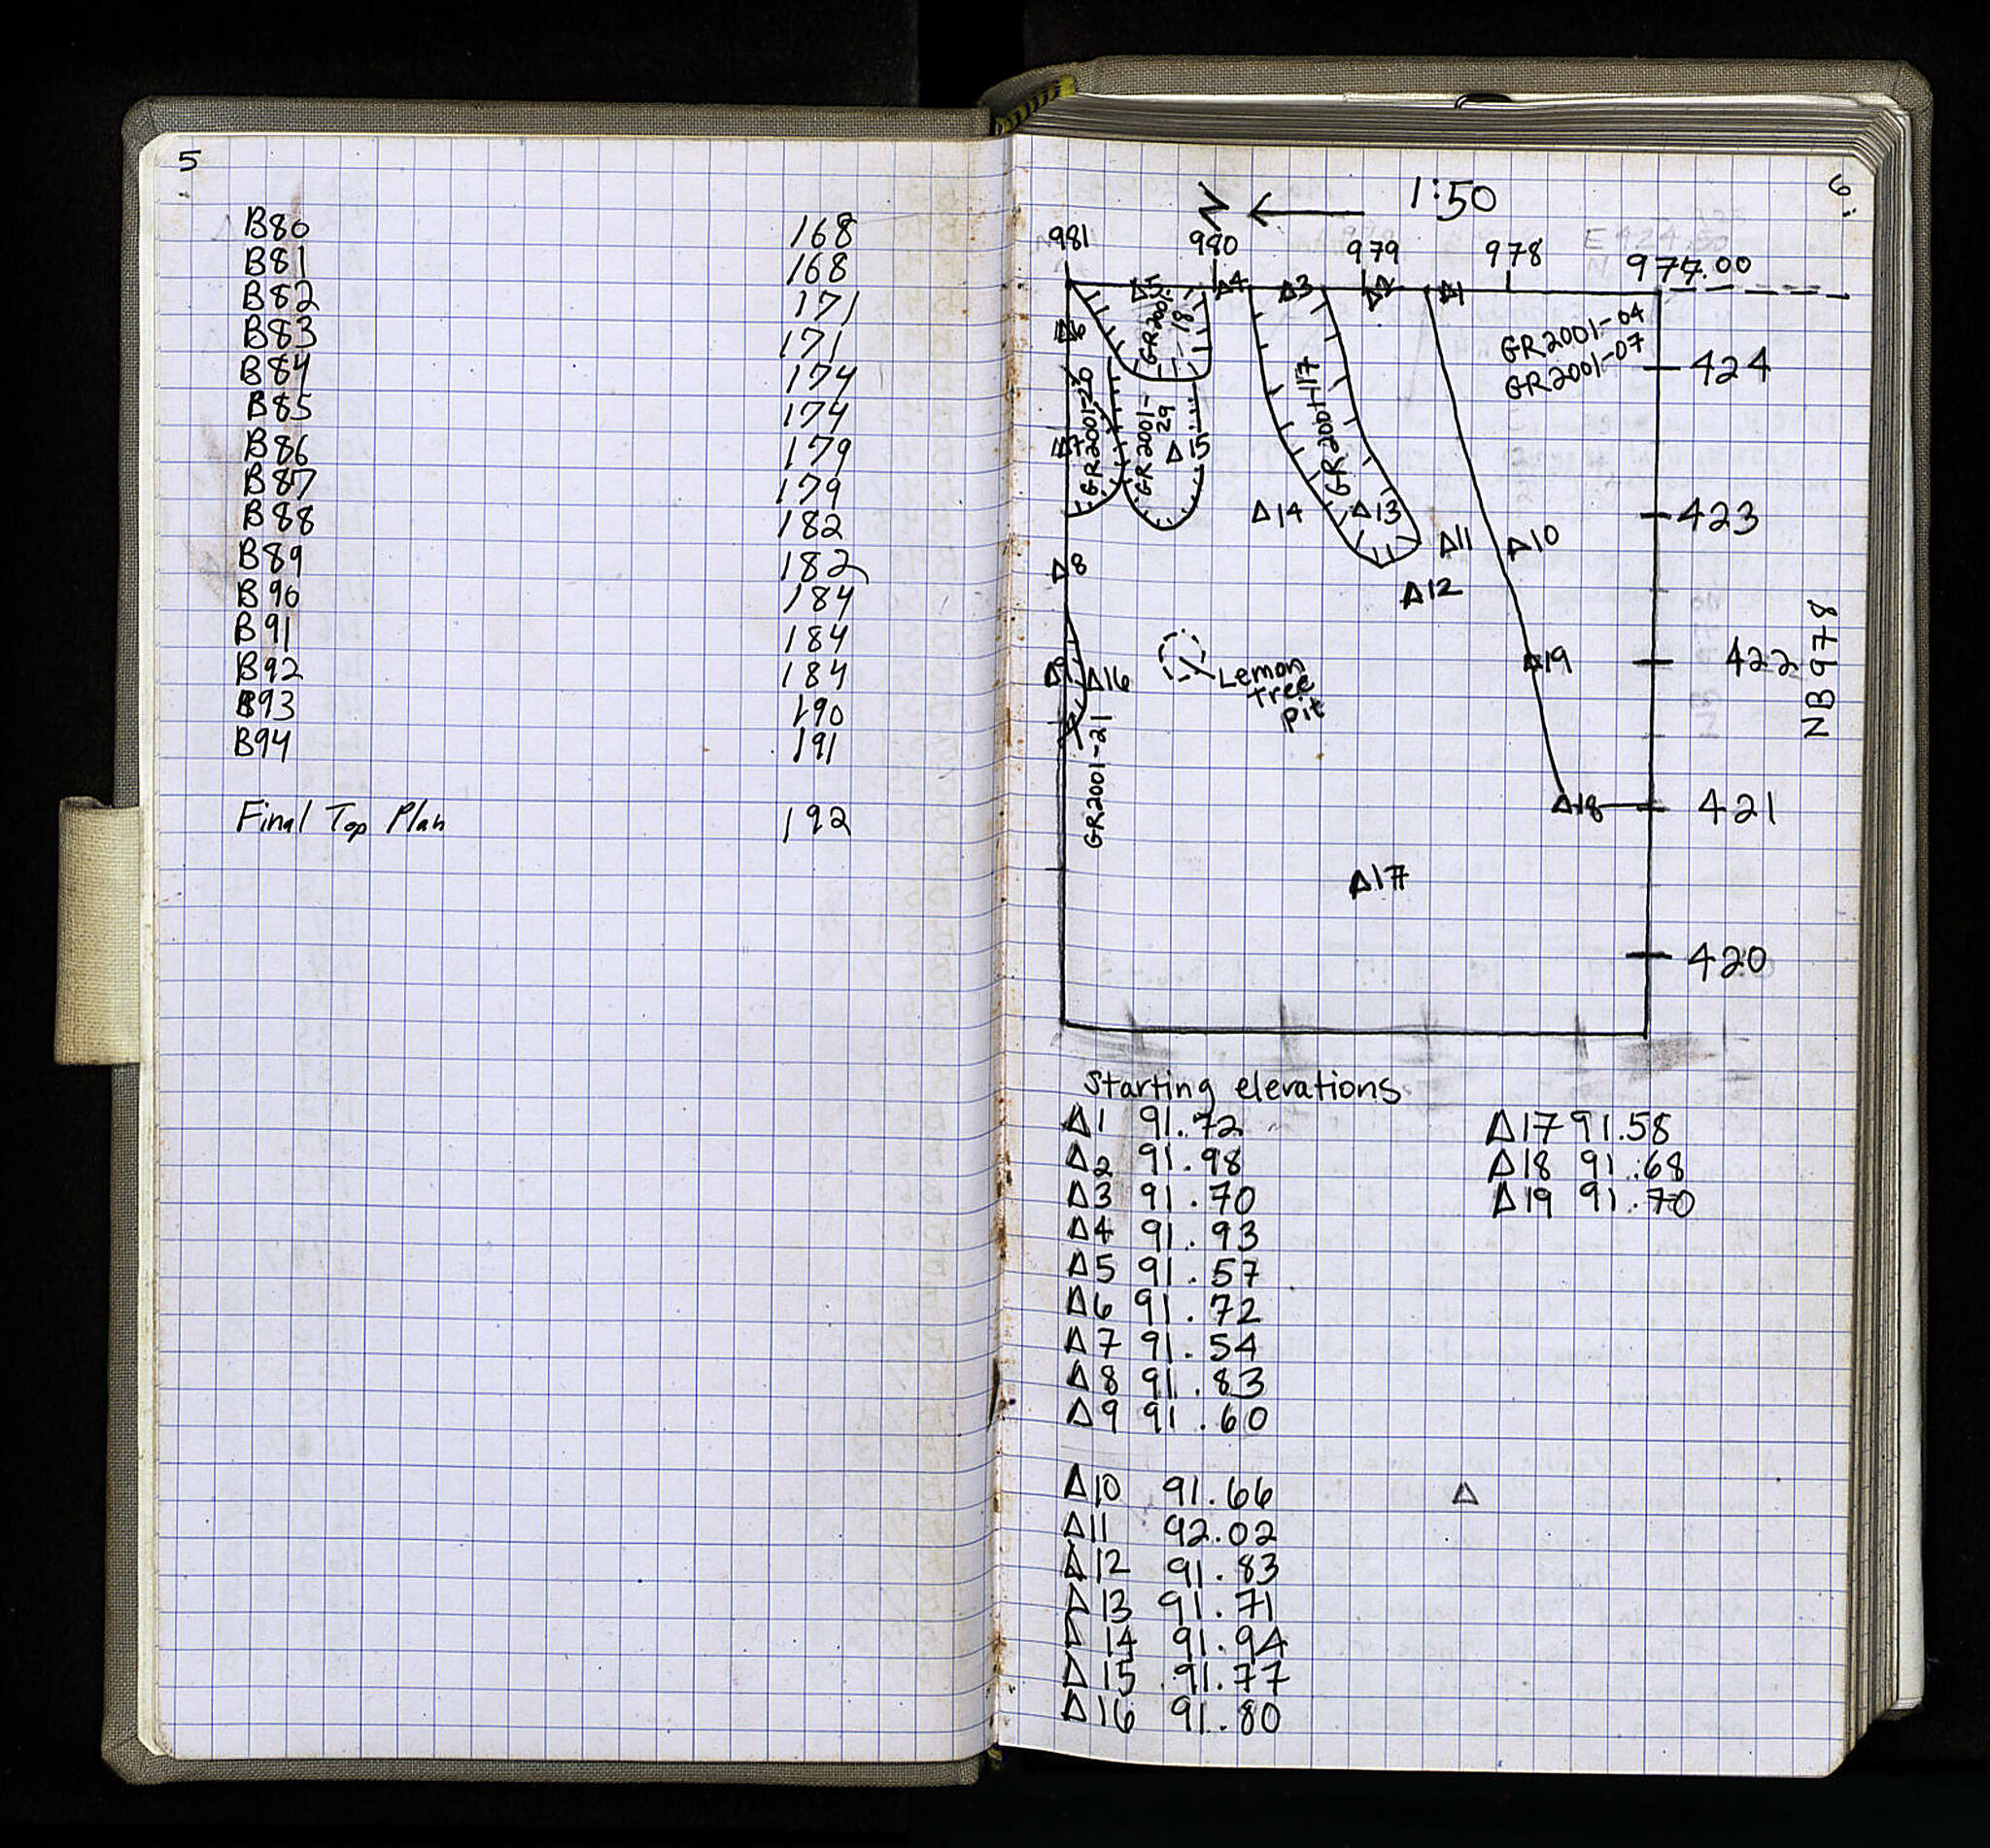 5
B80 168
B81 168
B82 171
B83 171
B84 174
B85 174
B86 179
B87 179
B88 182
B89 182
B90 184
B91 184
B92 184
B93 190
B94 191
Final Top Plan 192
6
1:50
N
981 980 979 978 977.00
Δ5 Δ4 Δ3 Δ2 Δ1
Δ6
GR2001-18
GR2001-04
GR2001-07
424
GR2001-26
GR2001-29
Δ15
Δ7
Δ14
Δ13
Δ11
Δ10
423
Δ8
Δ12
NB978
Δ9
Δ16
Lemon
tree
pit
Δ19
422
GR2001-21
Δ18
421
Δ17
420
Starting elevations
Δ1 91.72
Δ2 91.98
Δ3 91.70
Δ4 91.93
Δ5 91.57
Δ6 91.72
Δ7 91.54
Δ8 91.83
Δ9 91.60
Δ10 91.66
Δ11 92.02
Δ12 91.83
Δ13 91.71
Δ14 91.94
Δ15 91.77
Δ16 91.80
Δ17 91.58
Δ18 91.68
Δ19 91.70
Δ